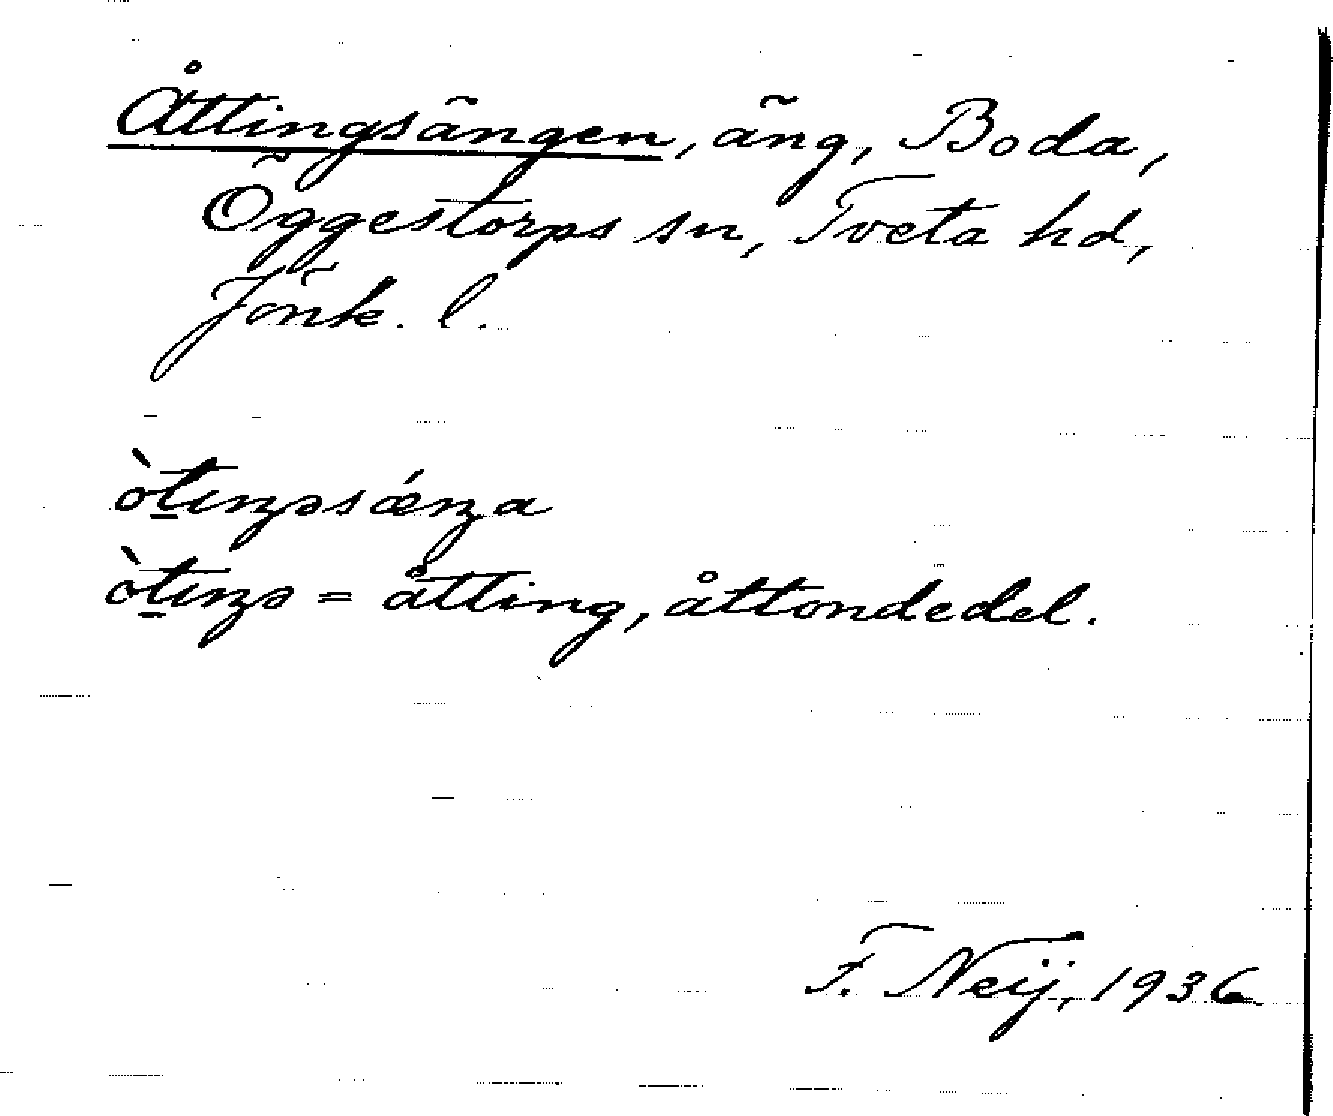 Åttingsängen, äng, Boda,
Öggestorps sn, Tveta hd,
Jönk. l.
òt̲ıŋəsǽŋa
òt̲ıŋə = åtting, åttondedel.
F. Neij, 1936